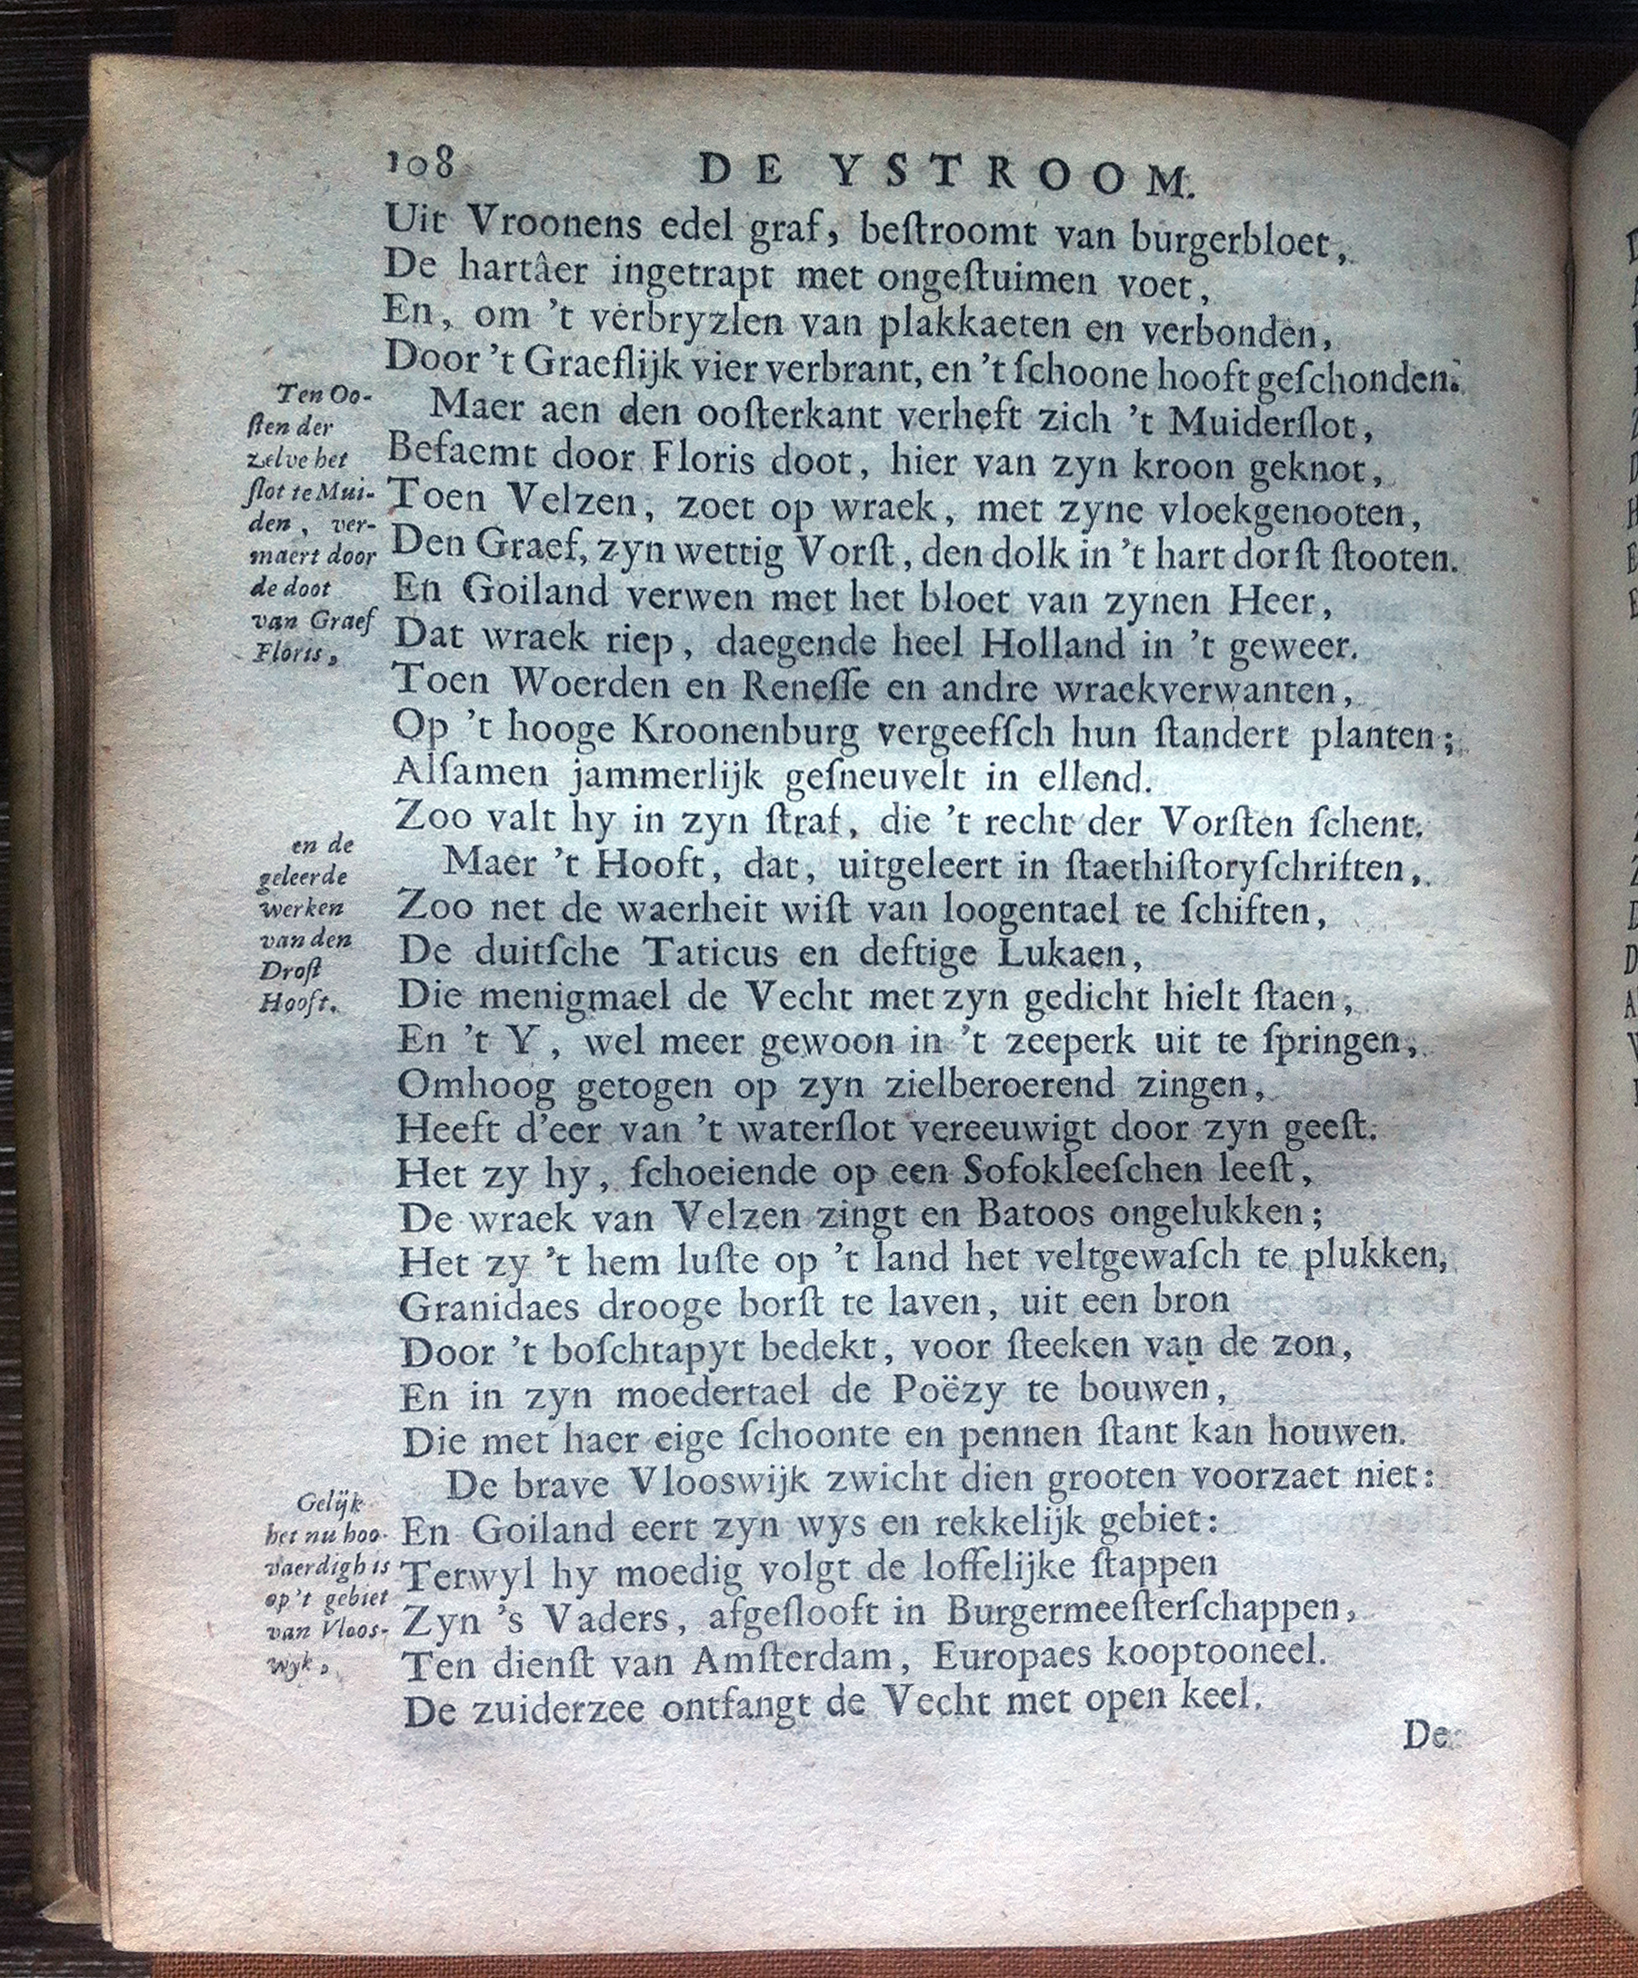 108 DE YSTROOM.
Uit Vroonens edel graf, beſtroomt van burgerbloet,
De hartâer ingetrapt met ongeſtuimen voet,
En, om 't verbryzlen van plakkaeten en verbonden,
Door 't Graeflijk vier verbrant, en 't ſchoone hooft geſchonden.
Ten Oo-
ſten der
zelve het
ſlot te Mui-
den, ver-
maert door
de doot
van Graef
Floris,
Maer aen den ooſterkant verheft zich 't Muiderſlot,
Befaemt door Floris doot, hier van zyn kroon geknot,
Toen Velzen, zoet op wraek, met zyne vloekgenooten,
Den Graef, zyn wettig Vorſt, den dolk in 't hart dorſt ſtooten.
En Goiland verwen met het bloet van zynen Heer,
Dat wraek riep, daegende heel Holland in 't geweer.
Toen Woerden en Reneſſe en andre wraekverwanten,
Op 't hooge Kroonenburg vergeefſch hun ſtandert planten;
Alſamen jammerlijk geſneuvelt in ellend.
Zoo valt hy in zyn ſtraf, die 't recht der Vorſten ſchent.
en de
geleerde
werken
van den
Droſt
Hooft.
Maer 't Hooft, dat, uitgeleert in ſtaethiſtoryſchriften,
Zoo net de waerheit wiſt van loogentael te ſchiften,
De duitſche Taticus en deftige Lukaen,
Die menigmael de Vecht met zyn gedicht hielt ſtaen,
En 't Y, wel meer gewoon in 't zeeperk uit te ſpringen,
Omhoog getogen op zyn zielberoerend zingen,
Heeft d'eer van 't waterſlot vereeuwigt door zyn geeſt.
Het zy hy, ſchoeiende op een Sofokleeſchen leeſt,
De wraek van Velzen zingt en Batoos ongelukken;
Het zy 't hem luſte op 't land het veltgewaſch te plukken,
Granidaes drooge borſt te laven, uit een bron
Door 't boſchtapyt bedekt, voor ſteeken van de zon,
En in zyn moedertael de Poëzy te bouwen,
Die met haer eige ſchoonte en pennen ſtant kan houwen.
Gelijk
het nu hoo-
vaerdigh is
op 't gebiet
van Vloos-
wyk,
De brave Vlooswijk zwicht dien grooten voorzaet niet:
En Goiland eert zyn wys en rekkelijk gebiet:
Terwyl hy moedig volgt de loffelijke ſtappen
Zyn 's Vaders, afgeſlooft in Burgermeeſterſchappen,
Ten dienſt van Amſterdam, Europaes kooptooneel.
De zuiderzee ontfangt de Vecht met open keel.
De